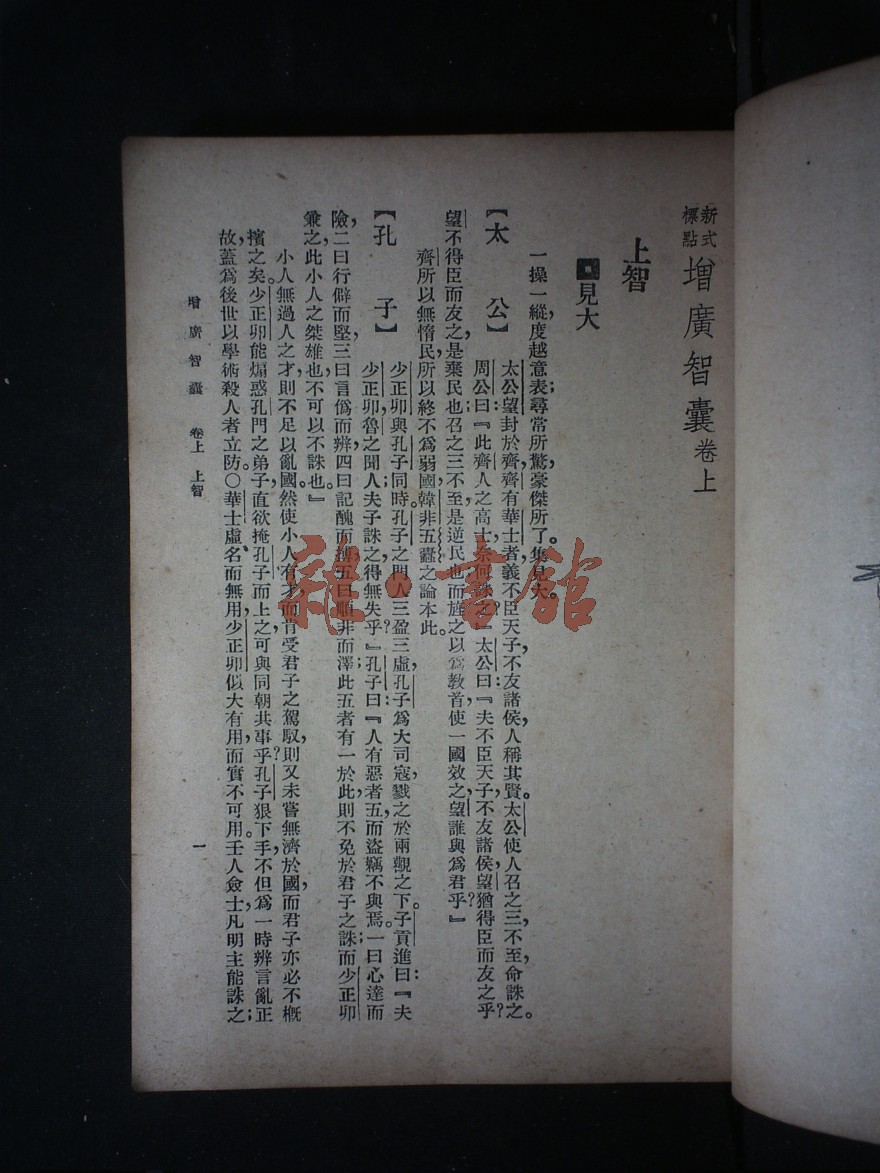 新式標點 增廣智囊 卷上
上智
見大
一操一縱，度越意表；尋常所驚，豪傑所了。集見大。
【太公】 太公望封於齊，齊有華士者，義不臣天子，不友諸侯，人稱其賢。太公使人召之三，不至，命誅之。
周公曰：『此齊人之高士，奈何誅之？』太公曰：『夫不臣天子，不友諸侯，望猶得臣而友之乎？
望不得臣而友之，是棄民也；召之三不至，是逆民也；而旌之以爲教首，使一國效之，望誰與爲君乎？』
齊所以無惰民，所以終不爲弱國，韓非五蠹之論本此。
【孔子】 少正卯與孔子同時，孔子之門人三盈三虛，孔子爲大司寇，戮之於兩觀之下。子貢進曰：『夫
少正卯，魯之聞人，夫子誅之，得無失乎？』孔子曰：『人有惡者五，而盜竊不與焉。一曰心達而
險，二曰行僻而堅，三曰言僞而辨，四曰記醜而博，五曰順非而澤；此五者有一於此，則不免於君子之誅；而少正卯
兼之，此小人之桀雄也，不可以不誅也。』
小人無過人之才，則不足以亂國。然使小人有才，而肯受君子之駕馭，則又未嘗無濟於國，而君子亦必不槪
擯之矣。少正卯能煽惑孔門之弟子，直欲掩孔子而上之，可與同朝共事乎？孔子狠下手，不但爲一時辨言亂正
故，蓋爲後世以學術殺人者立防。○華士虛名而無用，少正卯似大有用，而實不可用。壬人僉士，凡明主能誅之；
增廣智囊 卷上 上智 一
雜·書館